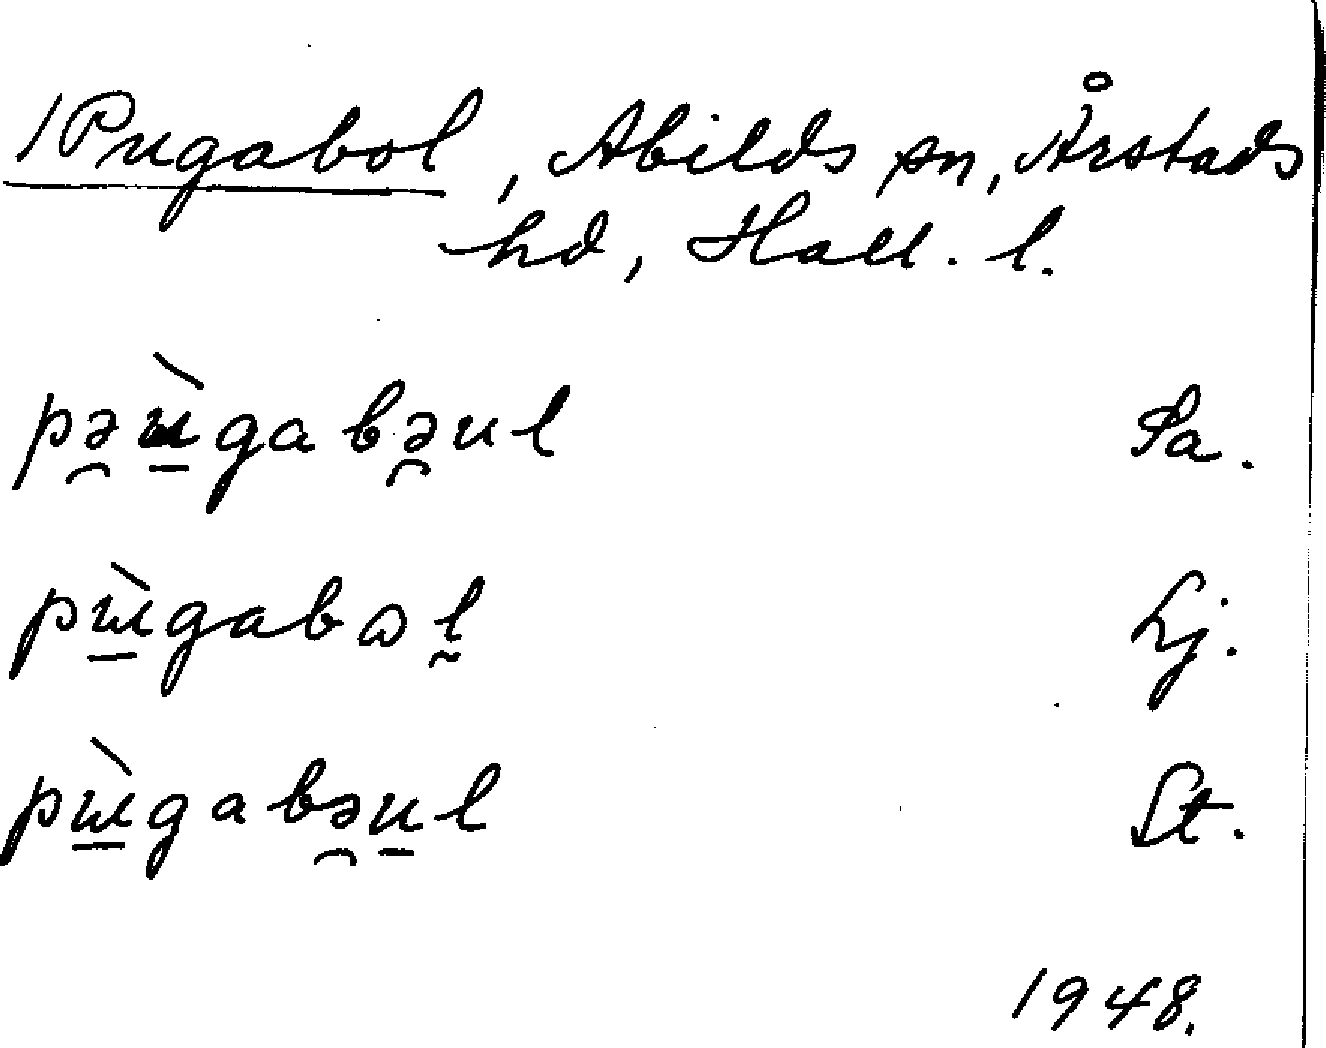 /Pugabol, Abilds sn, Årstads
hd, Hall. l.
pə̯ɯ̱̀gabə̯ul Sa.
pɯ̱̀gabɷl̰ Lj.
pɯ̱̀gabə̯u̱l St.
1948.